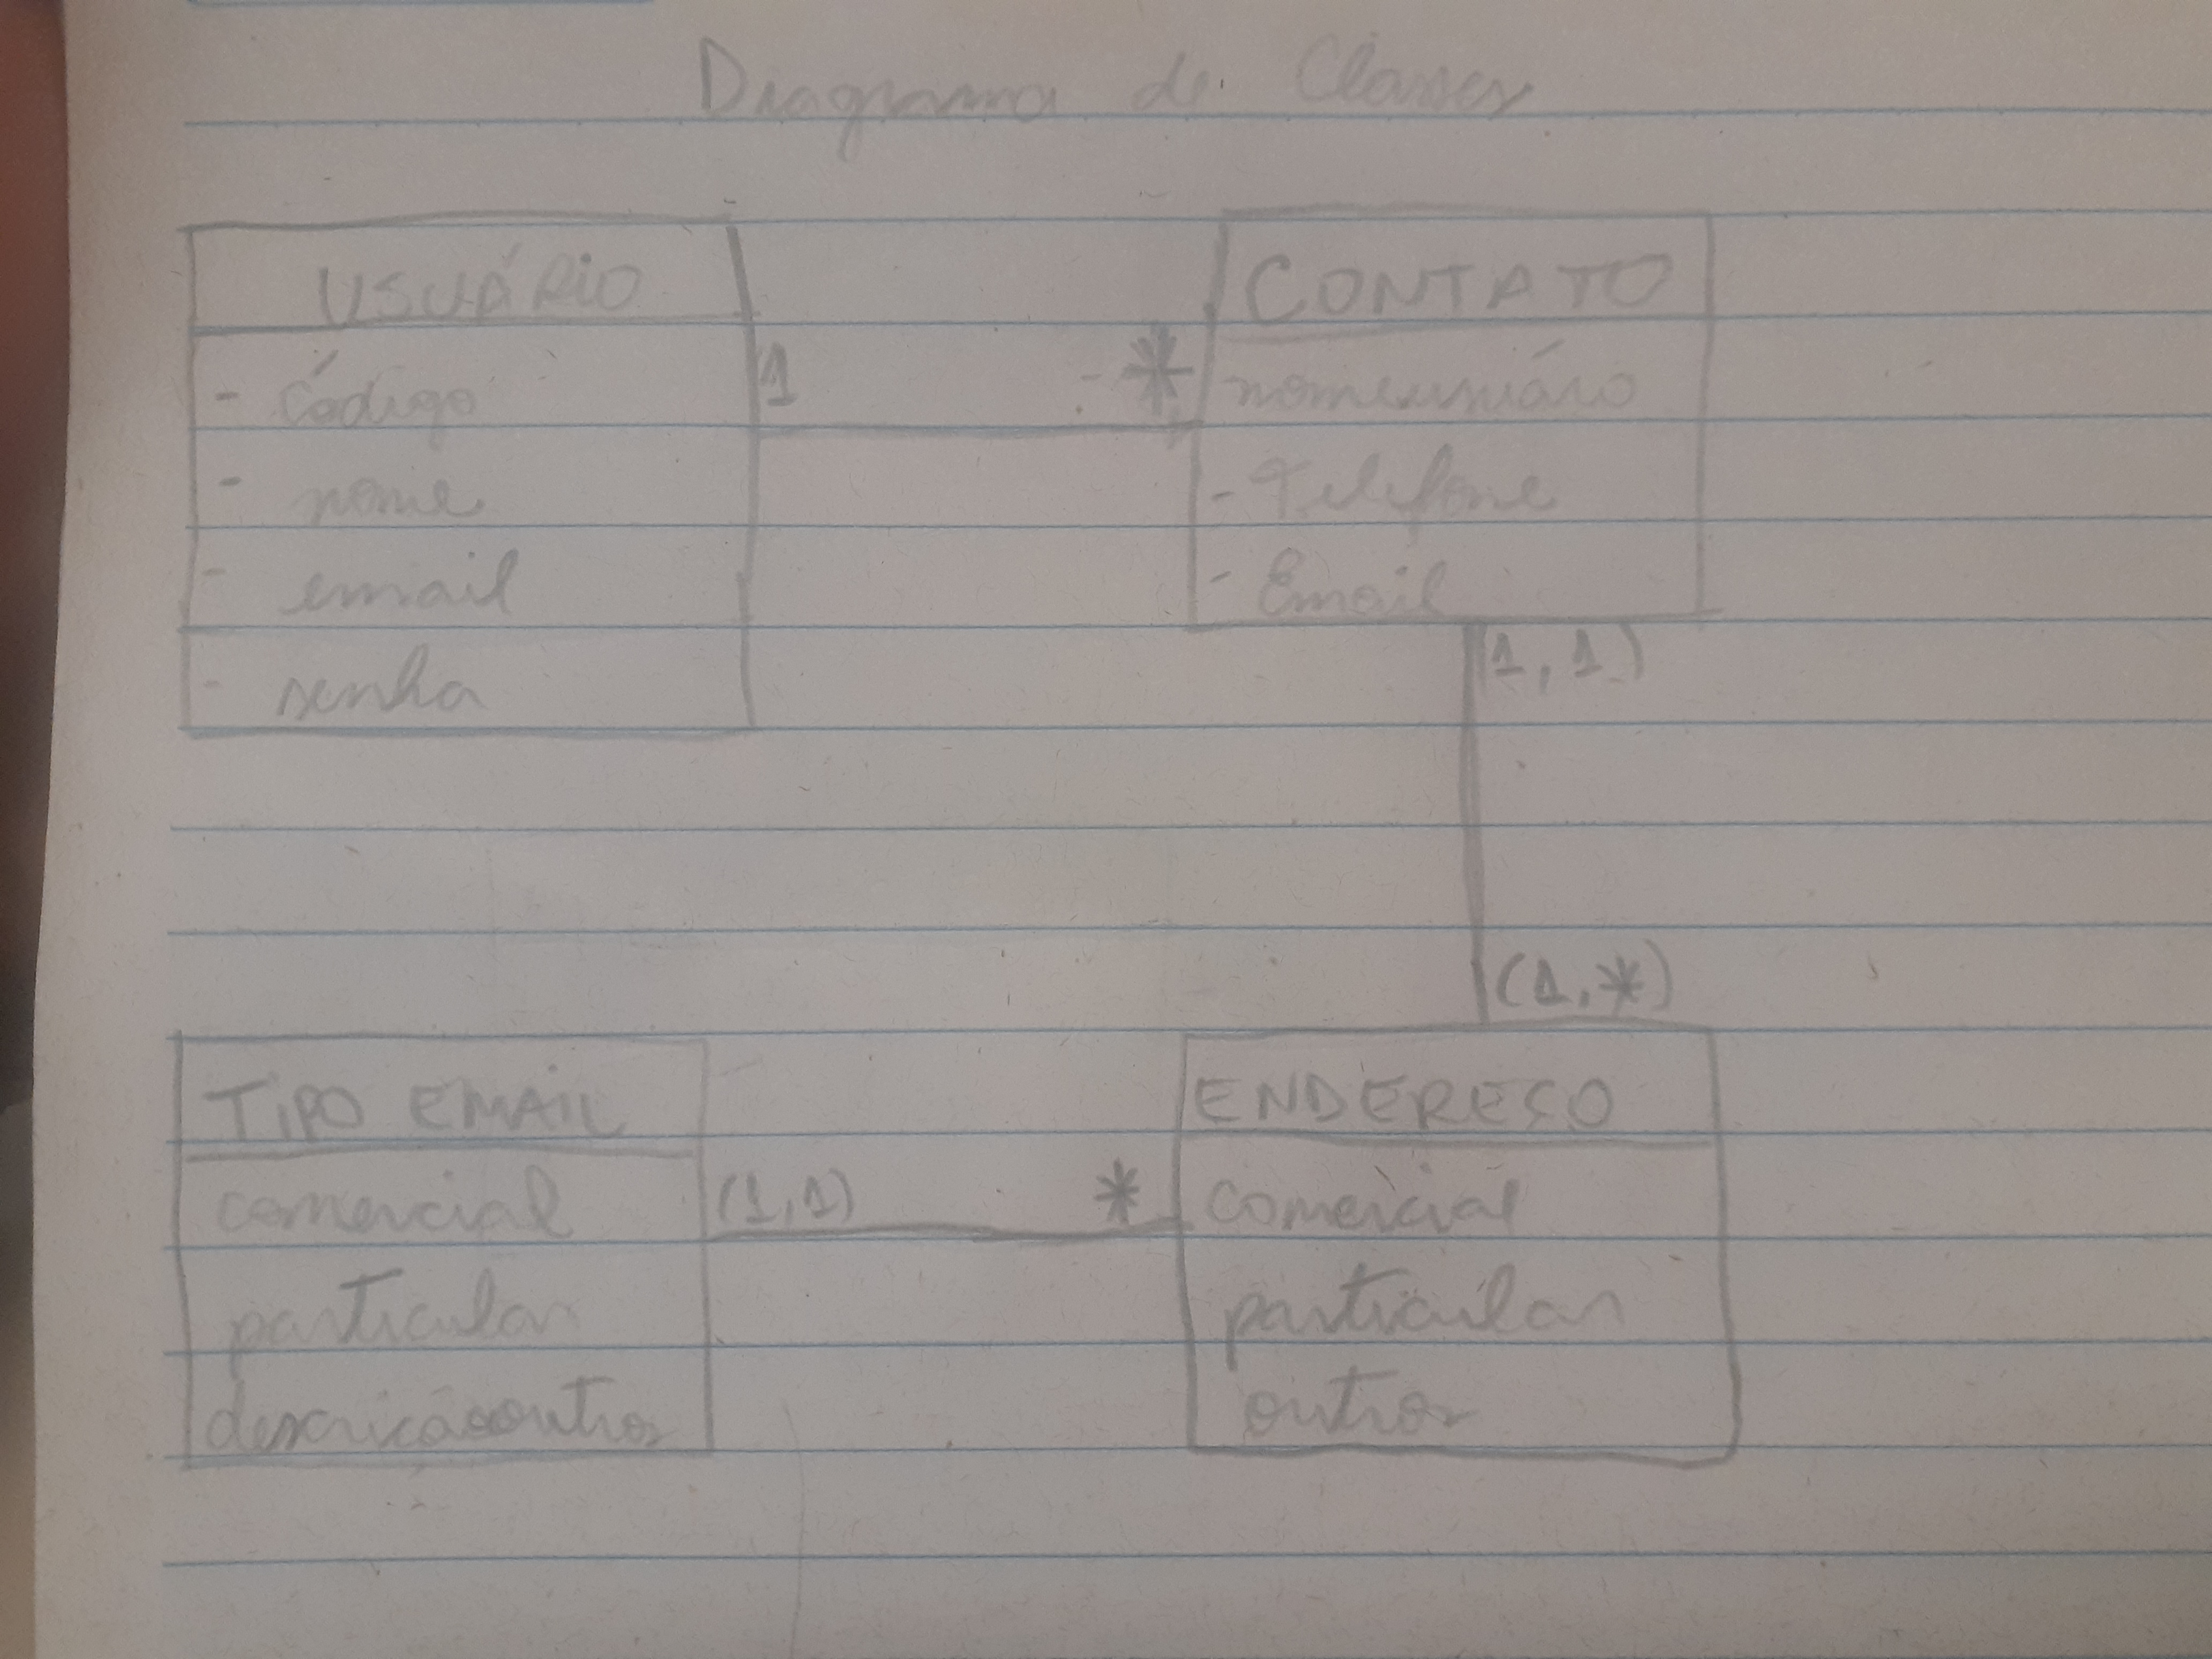 Diagrama de Classes
USUÁRIO
- Código
- nome
- email
- senha
1 *
CONTATO
nomeusuário
- Telefone
- Email
(1,1)
(1,*)
TIPO EMAIL
comercial
particular
descriçãooutros
(1,1) *
ENDEREÇO
comercial
particular
outros